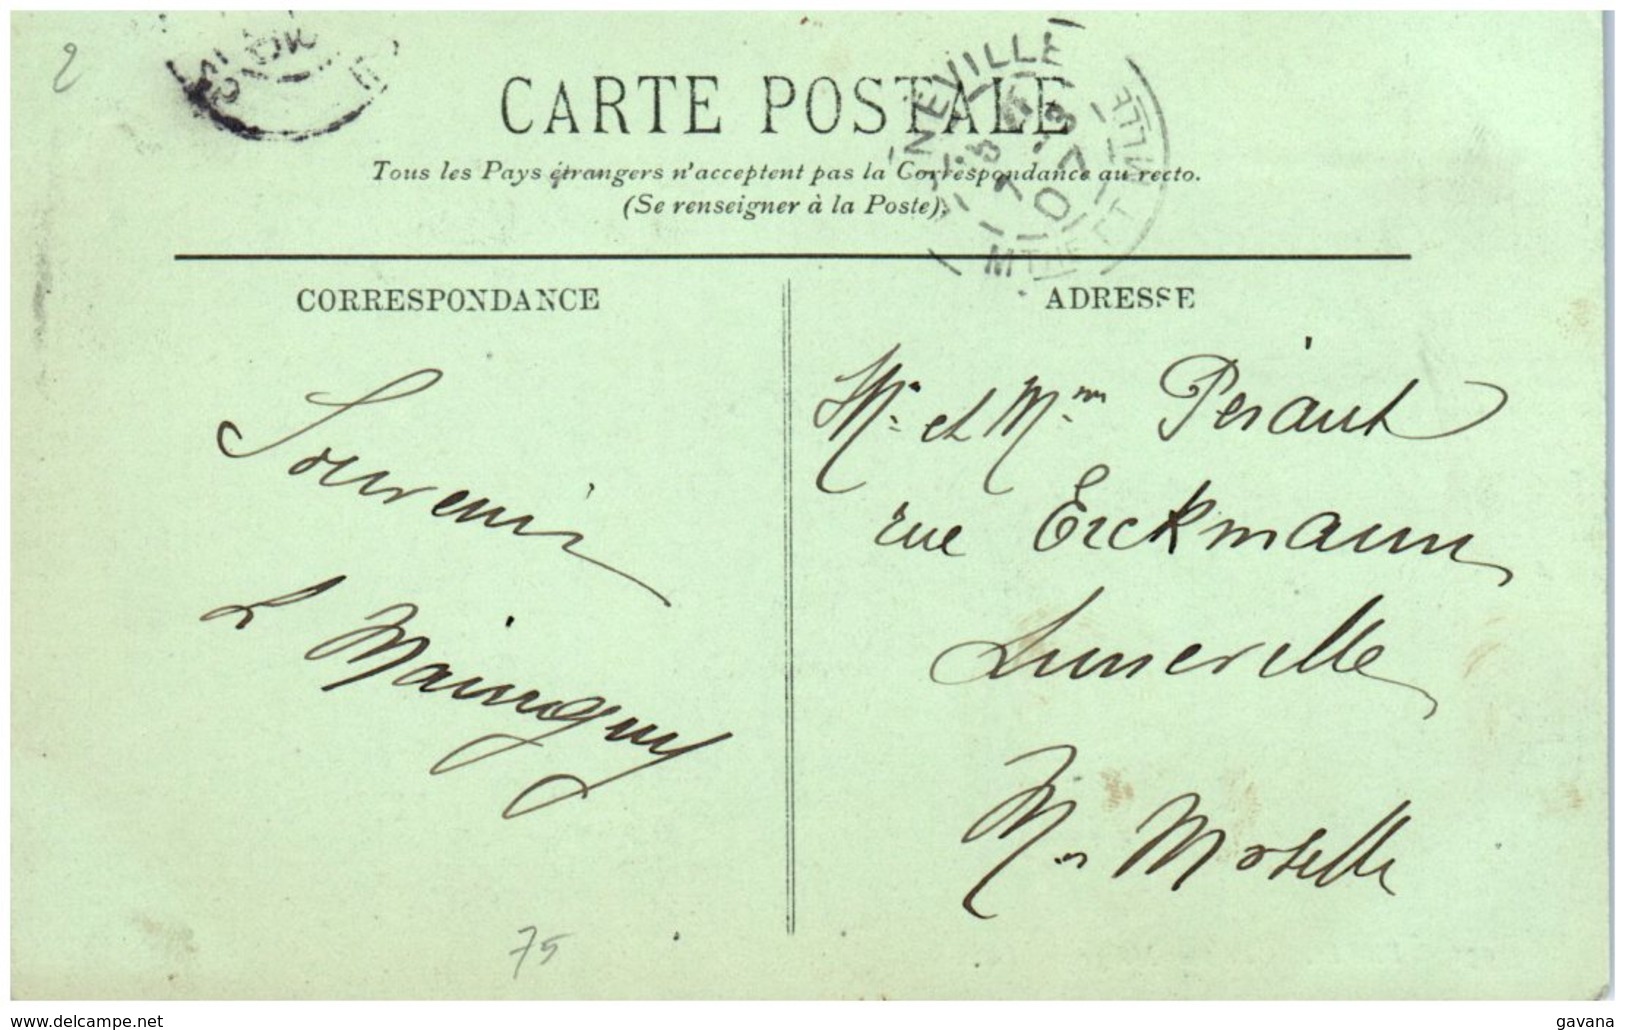 2
CARTE POSTALE
Tous les Pays étrangers n'acceptent pas la Correspondance au recto.
(Se renseigner à la Poste).
NEVILLE
MTHE ET
CORRESPONDANCE
Souvenir
L Mainguy
75
ADRESSE
Mr et Mme Péraut
rue Erckmann
Luneville
Mr Moselle
www.delcampe.net
gavana